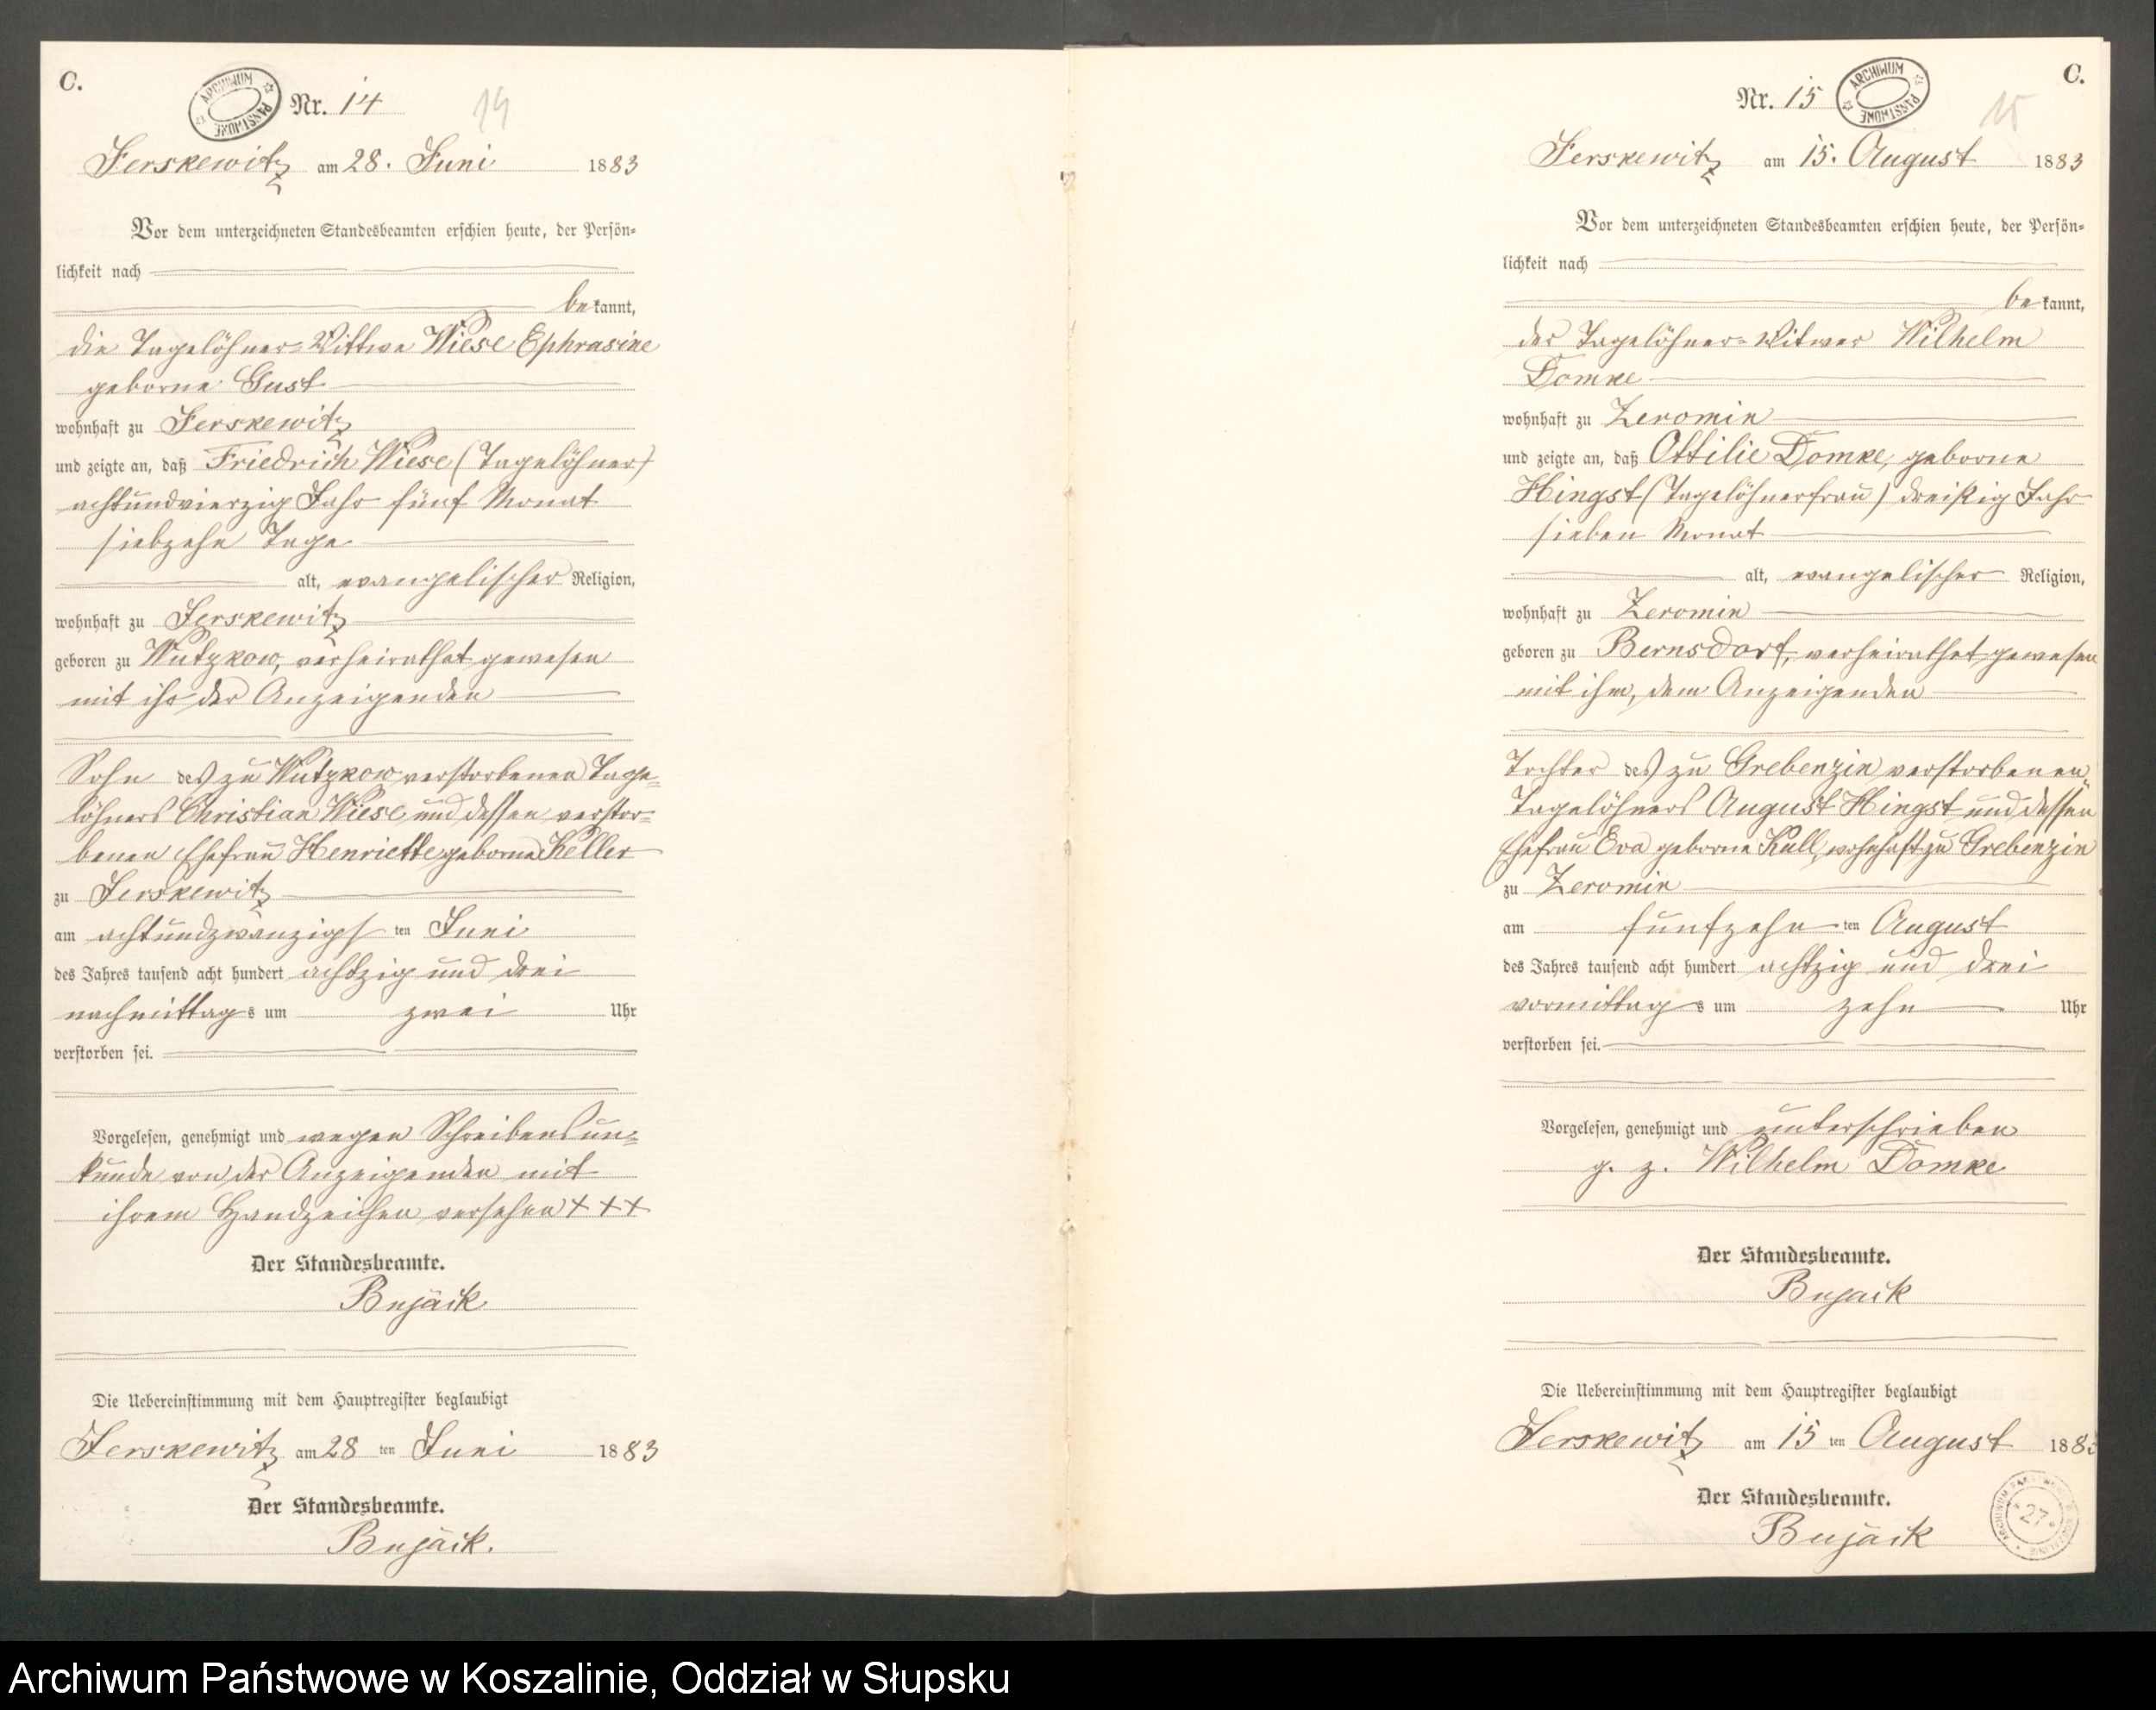 C.
ARCHIWUM PAŃSTWOWE
Nr. 14
14
Jerskewitz am 28. Juni 1883
Vor dem unterzeichneten Standesbeamten erschien heute, der Persön-
lichkeit nach
bekannt,
die Tagelöhner-Wittwe Wiese Ephrasine
geborne Gust
wohnhaft zu Jerskewitz
und zeigte an, daß Friedrich Wiese (Tagelöhner)
achtundvierzig Jahr fünf Monat
siebzehn Tage
alt, evangelischer Religion,
wohnhaft zu Jerskewitz
geboren zu Wutzkow, verheirathet gewesen
mit ihr der Anzeigenden
Sohn des zu Wutzkow verstorbenen Tage-
löhners Christian Wiese und dessen verstor-
benen Ehefrau Henriette geborne Keller
zu Jerskewitz
am achtundzwanzigsten Juni
des Jahres tausend acht hundert achtzig und drei
nachmittags um zwei Uhr
verstorben sei.
Vorgelesen, genehmigt und wegen Schreibensun-
kunde von der Anzeigenden mit
ihrem Handzeichen versehen + + +
Der Standesbeamte.
Bujack
Die Uebereinstimmung mit dem Hauptregister beglaubigt
Jerskewitz am 28 ten Juni 1883
Der Standesbeamte.
Bujack.
C.
Nr. 15
ARCHIWUM PAŃSTWOWE
15
Jerskewitz am 15. August 1883
Vor dem unterzeichneten Standesbeamten erschien heute, der Persön-
lichkeit nach
bekannt,
der Tagelöhner-Witwer Wilhelm
Domke
wohnhaft zu Zeromin
und zeigte an, daß Ottilie Domke, geborne
Hingst (Tagelöhnerfrau) dreißig Jahr
sieben Monat
alt, evangelischer Religion,
wohnhaft zu Zeromin
geboren zu Bernsdorf, verheirathet gewesen
mit ihm, dem Anzeigenden
Tochter des zu Grebenzin verstorbenen
Tagelöhners August Hingst und dessen
Ehefrau Eva geborne Kull, wohnhaft zu Grebenzin
zu Zeromin
am fünfzehnten August
des Jahres tausend acht hundert achtzig und drei
vormittags um zehn Uhr
verstorben sei.
Vorgelesen, genehmigt und unterschrieben
g. z. Wilhelm Domke
Der Standesbeamte.
Bujack
Die Uebereinstimmung mit dem Hauptregister beglaubigt
Jerskewitz am 15 ten August 1883
Der Standesbeamte.
Bujack
27
Archiwum Państwowe w Koszalinie, Oddział w Słupsku